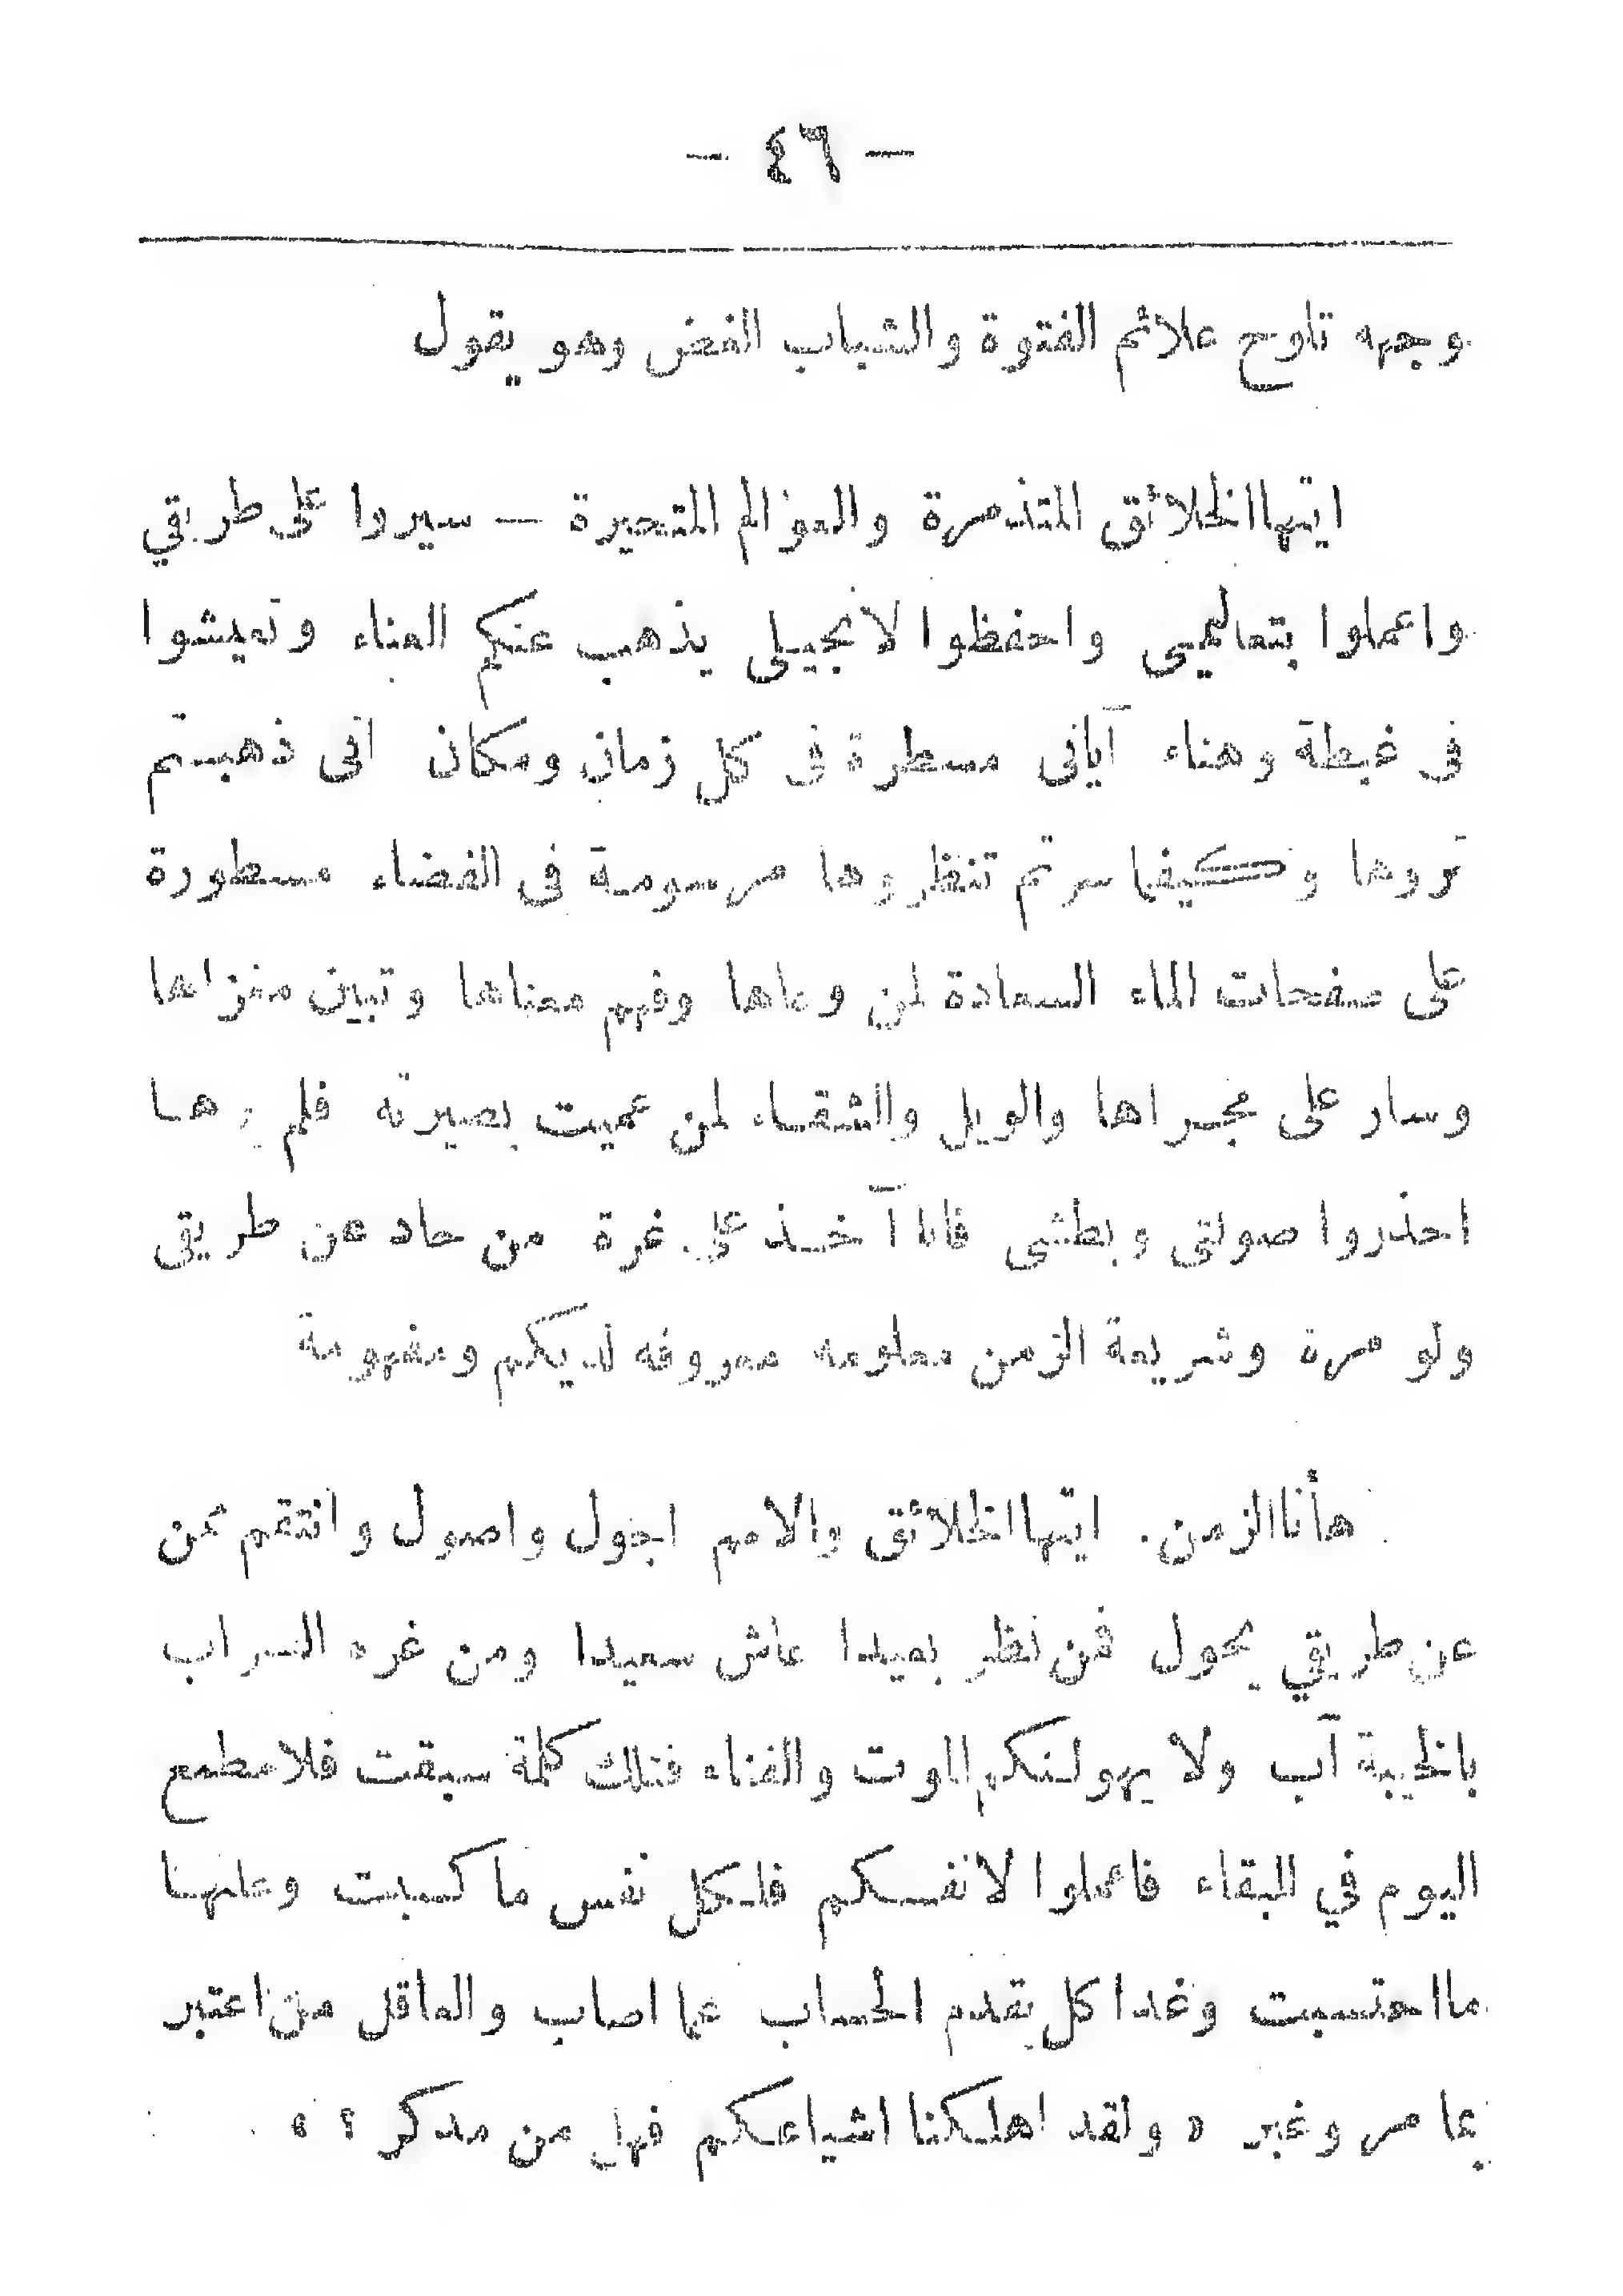 — ٤٦ —
وجهه تلوح علائم الفتوة والشباب الغض وهو يقول
ايتها الخلائق المتذمرة والعوالم المتحيرة — سيروا على طريقي
واعملوا بتعاليمي واحفظوا لانجيلى يذهب عنكم العناء وتعيشوا
فى غبطة وهناء آياتى مسطرة فى كل زمان ومكان انى ذهبتم
تروها وكيفما سرتم تنظروها مرسومة فى الفضاء مسطورة
على صفحات الماء السعادة لمن وعاها وفهم معناها وتبين مغزاها
وسار على مجراها والويل والشقاء لمن عميت بصيرته فلم
احذروا صولتى وبطشى فانا آخذ على غرة من حاد عن طريقى
ولو مرة وشريعة الزمن معلومه معروفه لديكم ومفهومة
هأنا الزمن. ايتها الخلائق والامم اجول واصول وانتقم عن
عن طريقي يحول فمن نظر بعيدا عاش سعيدا ومن غره السراب
بالخيبة آب ولا يهولنكم الموت والفناء فتلك كلمة سبقت فلا مطمع
اليوم في البقاء فاعملوا لانفسكم فلكل نفس ما كسبت وعليها
ما احتسبت وغدا كل يقدم الحساب عما اصاب والعاقل من اعتبر
بما مر وغبر « ولقد اهلكنا اشياعكم فهل من مدكر ؟ »